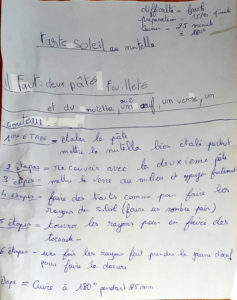 difficulté = facile
préparation = 15/20 minute
Cuisson = 25 minute
= 180°
Tarte Soleil au nutella
Il Faut : deux pâtes feuilletés
et du nutella, oui un œuf, un verre, un
couteau
1ère ETAPE = étaler la pâte
mettre du nutella bien étalé partout
2 étapes = recouvrir avec la deuxième pâte
3 étapes = mettre le verre au milieu et appuyer
4 étapes = faire des traits comme pour faire les
rayons du soleil (faire un nombre pair)
5 étapes = tourner les rayons pour en faire des
torsade
6 étape = une fois les rayons fait
pour faire la dorure
étape = Cuire à 180° pendant 25 min